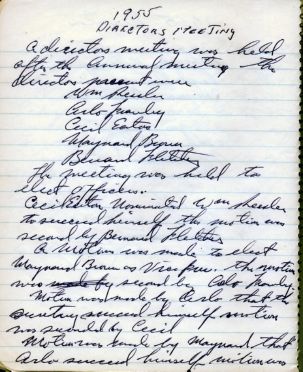 1955
DIRECTORS MEETING
A directors meeting was held
after the Annual meeting the
directors present were
Wm
Carlo
Cecil Eaton
Maynard Brown
Bernard Fletcher
The meeting was held to
elect officers.
Cecil Eaton Nominated Wm
to succeed himself the motion was
second by Bernard Fletcher
A Motion was made to elect
Maynard Brown as Vice pres. The motion
was made by second by Carlo
Motion was made by Carlo that the
succeed himself motion
was seconded by Cecil
Motion was made by Maynard that
Carlo succeed himself motion was